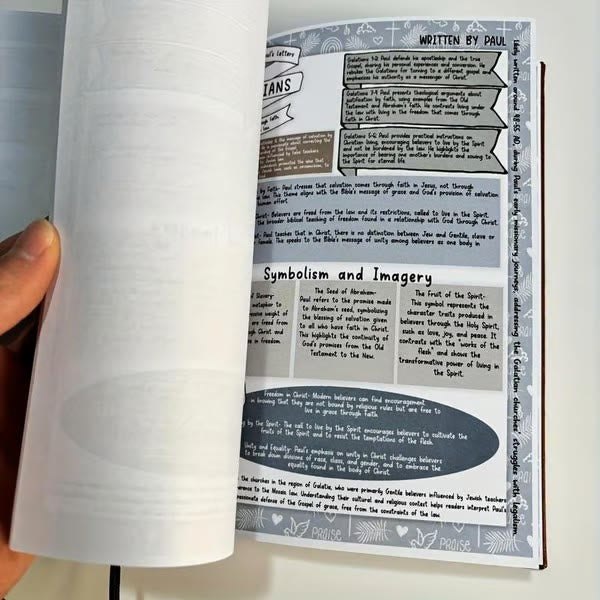 WRITTEN BY PAUL
Paul's letters
IANS
Galatians 1-2: Paul defends his apostleship and the true
Gospel, sharing his personal experiences and conversion. He
rebukes the Galatians for turning to a different gospel and
emphasizes his authority as a messenger of Christ.
Galatians 3-4: Paul presents theological arguments about
justification by faith, using examples from the Old
Testament and Abraham's faith. He contrasts living under
the law with living in the freedom that comes through
faith in Christ.
Galatians 5-6: Paul provides practical instructions on
Christian living, encouraging believers to live by the Spirit
and not be burdened by the law. He highlights the
importance of bearing one another's burdens and sowing to
the Spirit for eternal life.
by Faith- Paul stresses that salvation comes through faith in Jesus, not through
law. This theme aligns with the Bible's message of grace and God's provision of salvation
human effort.
Christ- Believers are freed from the law and its restrictions, called to live in the Spirit.
broader biblical teaching of freedom found in a relationship with God through Christ.
Paul teaches that in Christ, there is no distinction between Jew and Gentile, slave or
female. This speaks to the Bible's message of unity among believers as one body in
Symbolism and Imagery
of Slavery-
metaphor to
weight of
are freed from
through Christ and
in freedom.
The Seed of Abraham-
Paul refers to the promise made
to Abraham's seed, symbolizing
the blessing of salvation given
to all who have faith in Christ.
This highlights the continuity of
God's promises from the Old
Testament to the New.
The Fruit of the Spirit-
This symbol represents the
character traits produced in
believers through the Holy Spirit,
such as love, joy, and peace. It
contrasts with the "works of the
flesh" and shows the
transformative power of living in
the Spirit.
Freedom in Christ- Modern believers can find encouragement
in knowing that they are not bound by religious rules but are free to
live in grace through faith.
by the Spirit- The call to live by the Spirit encourages believers to cultivate the
fruits of the Spirit and to resist the temptations of the flesh.
Unity and Equality- Paul's emphasis on unity in Christ challenges believers
to break down divisions of race, class, and gender, and to embrace the
equality found in the body of Christ.
the churches in the region of Galatia, who were primarily Gentile believers influenced by Jewish teachers
to the Mosaic law. Understanding their cultural and religious context helps readers interpret Paul's
passionate defense of the Gospel of grace, free from the constraints of the law.
likely written around 48-55 AD, during Paul's early missionary journeys, addressing the Galatian churches' struggles with legalism.
PRAISE
PRAISE